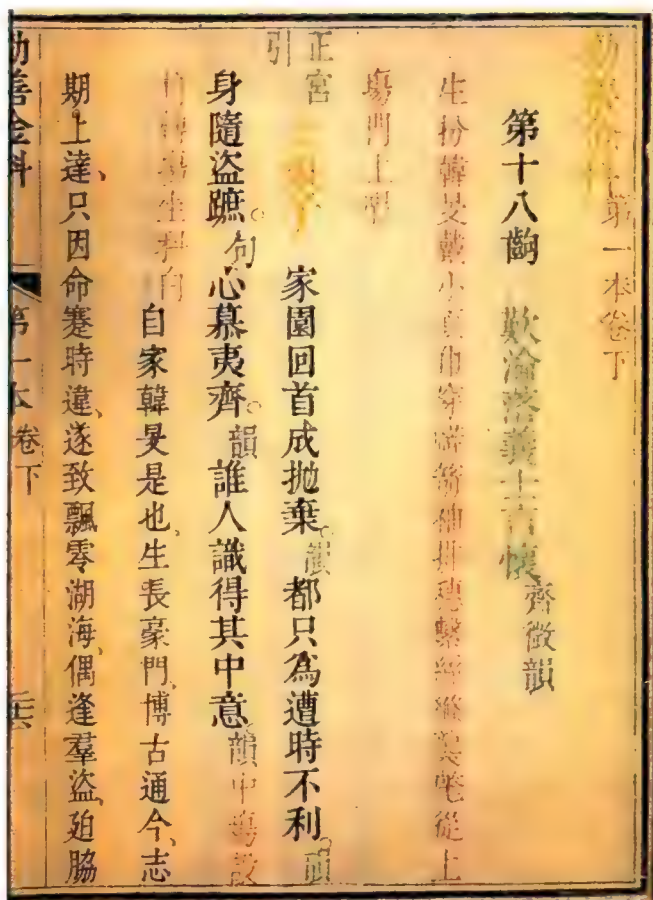 第一本卷下
第十八齣 歎淪落義士書懷 齊微韻
生扮韓旻戴小頁巾穿箭袖排穗繫從上
場門上唱
正宮引 家園回首成拋棄。韻 都只為遭時不利。韻
身隨盜蹠。句 心慕夷齊。韻 誰人識得其中意 韻 中場設
椅轉場坐科白 自家韓旻是也、生長豪門、博古通今、志
期上達、只因命蹇時違、遂致飄零湖海、偶逢羣盜、廹脇
勸善金科 第一本卷下